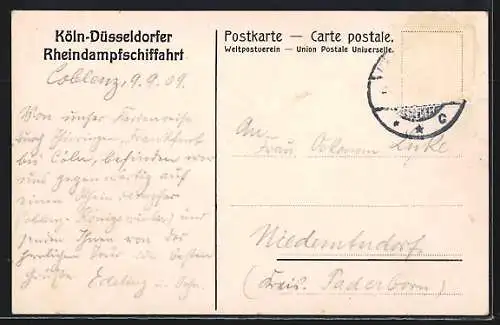 Köln-Düsseldorfer
Rheindampfschiffahrt
Postkarte — Carte postale.
Weltpostverein — Union Postale Universelle.
Coblenz, 9.9.09.
Von unser Ferienreise
durch Thüringen, Frankfurt
bis Cöln, befinden wir
uns gegenwärtig auf
einem Rhein
Coblenz Königswinter) und
senden Ihnen von der
herrlichen Reise die besten
Grüße u. Sohn.
An
Frau Ökonom Luke
Niederntudorf
(Kreis. Paderborn)
* * C